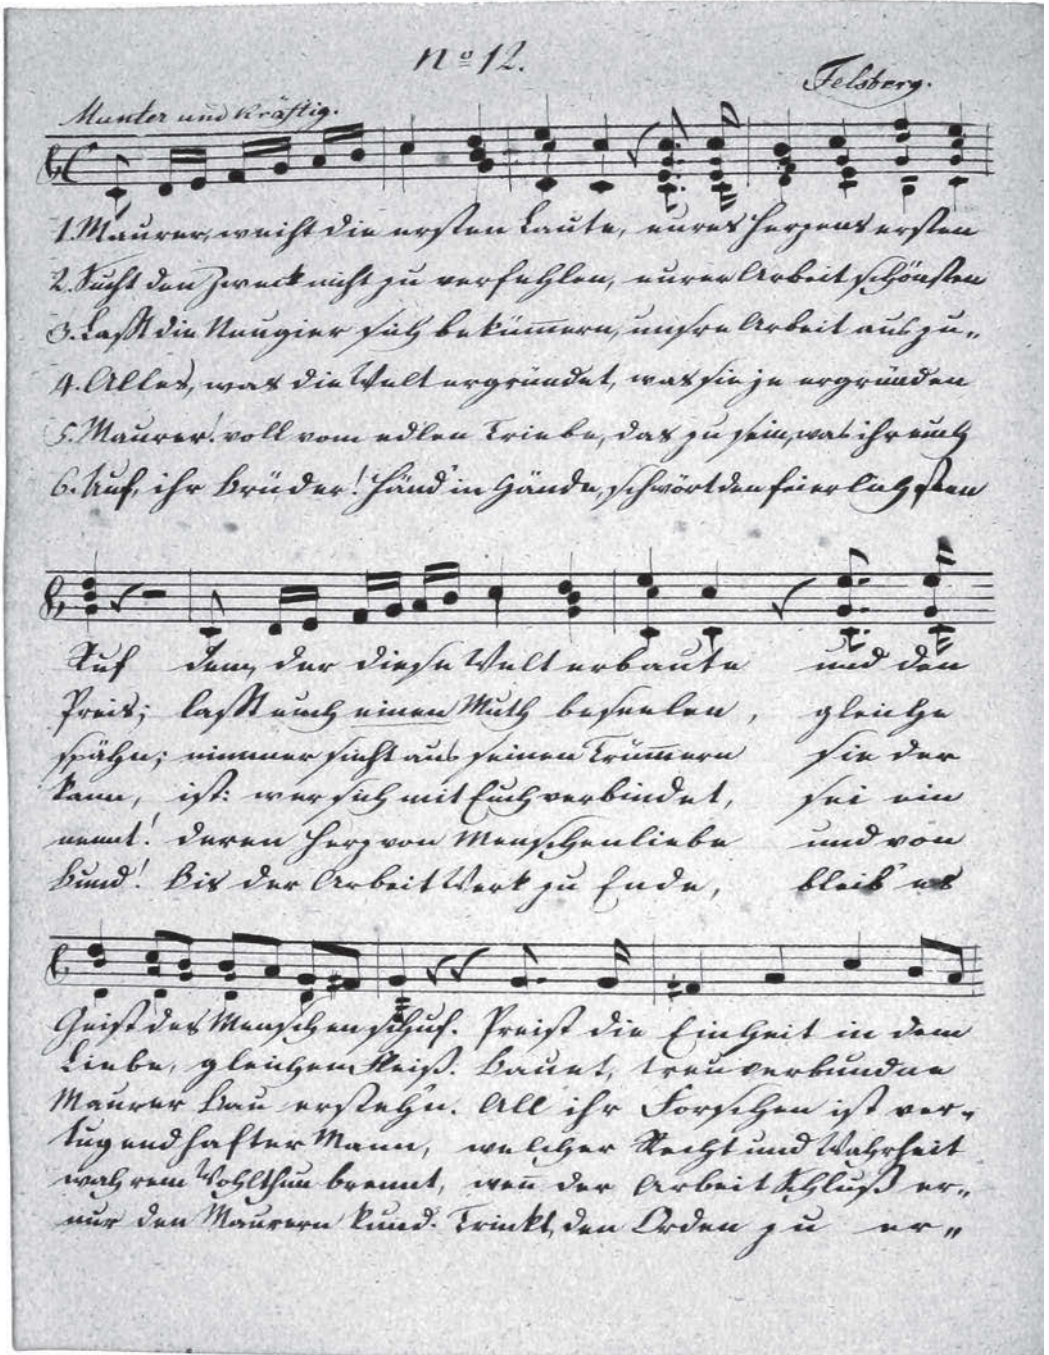 No 12.
Felsberg.
Munter und kräftig.
1. Maurer, weiht die ersten Laute, eures Herzens ersten
2. Sucht den Zweck nicht zu verfehlen, eurer Arbeit schönsten
3. Laßt die Neugier sich bekümmern, unsre Arbeit auszu„
4. Alles, was die Welt ergründet, was sie je ergründen
5. Maurer! voll vom edlen Triebe, das zu sein, was ihr euch
6. Auf, ihr Brüder! Händ' in Hände, schwört den feierlichsten
Ruf dem, der diese Welt erbaute und den
Preis; laßt euch einen Muth beseelen, gleiche
spähn; nimmer sieht aus seinen Trümmern sie der
kann, ist: wer sich mit Euch verbindet, sei ein
nennt! deren Herz von Menschenliebe und von
Bund! Bis der Arbeit Werk zu Ende, bleib' es
Geist des Menschen schuf. Preist die Einheit in dem
Liebe, gleichem Fleiß. Bauet, treu verbundne
Maurer Bau erstehn. All ihr Forschen ist ver-
tugendhafter Mann, welcher Recht und Wahrheit
wahrem Wohlthun brennt, wen̄ der Arbeit Schluß er„
nur den Maurern kund. Trinkt, den Orden zu er„